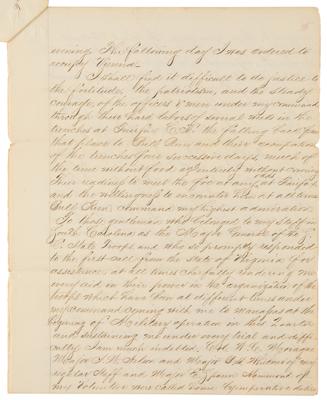 evening. The following day I was ordered to
occupy
I shall find it difficult to do justice to
the fortitude, the patriotism, and the steady
courage, of the officers & men under my command
through their hard labors of several weeks in the
trenches at Fairfax C. H. the falling back from
that place to Bull Run and their occupation
of the trenches four successive days, much of
the time without food
Their readiness to meet the foe at Fairfax
and the to encounter him at
Bull Run, command my highest admiration.
To those gentlemen who belonged to my staff in
South Carolina as the Major General of
State Troops and who so promptly responded
to the first call from the State of Virginia for
assistance, at all times cheerfully rendering me
every aid in their power in the organization of the
troops which have been at different times under
my command coming with me to Manassas at the
opening of Military operation in this Quarter
and sustaining me under every trial and
difficulty I am much indebted, Col. W. C.
Major and Major
Staff and Major Hammond of
my Volunteer were called some by imperative duties